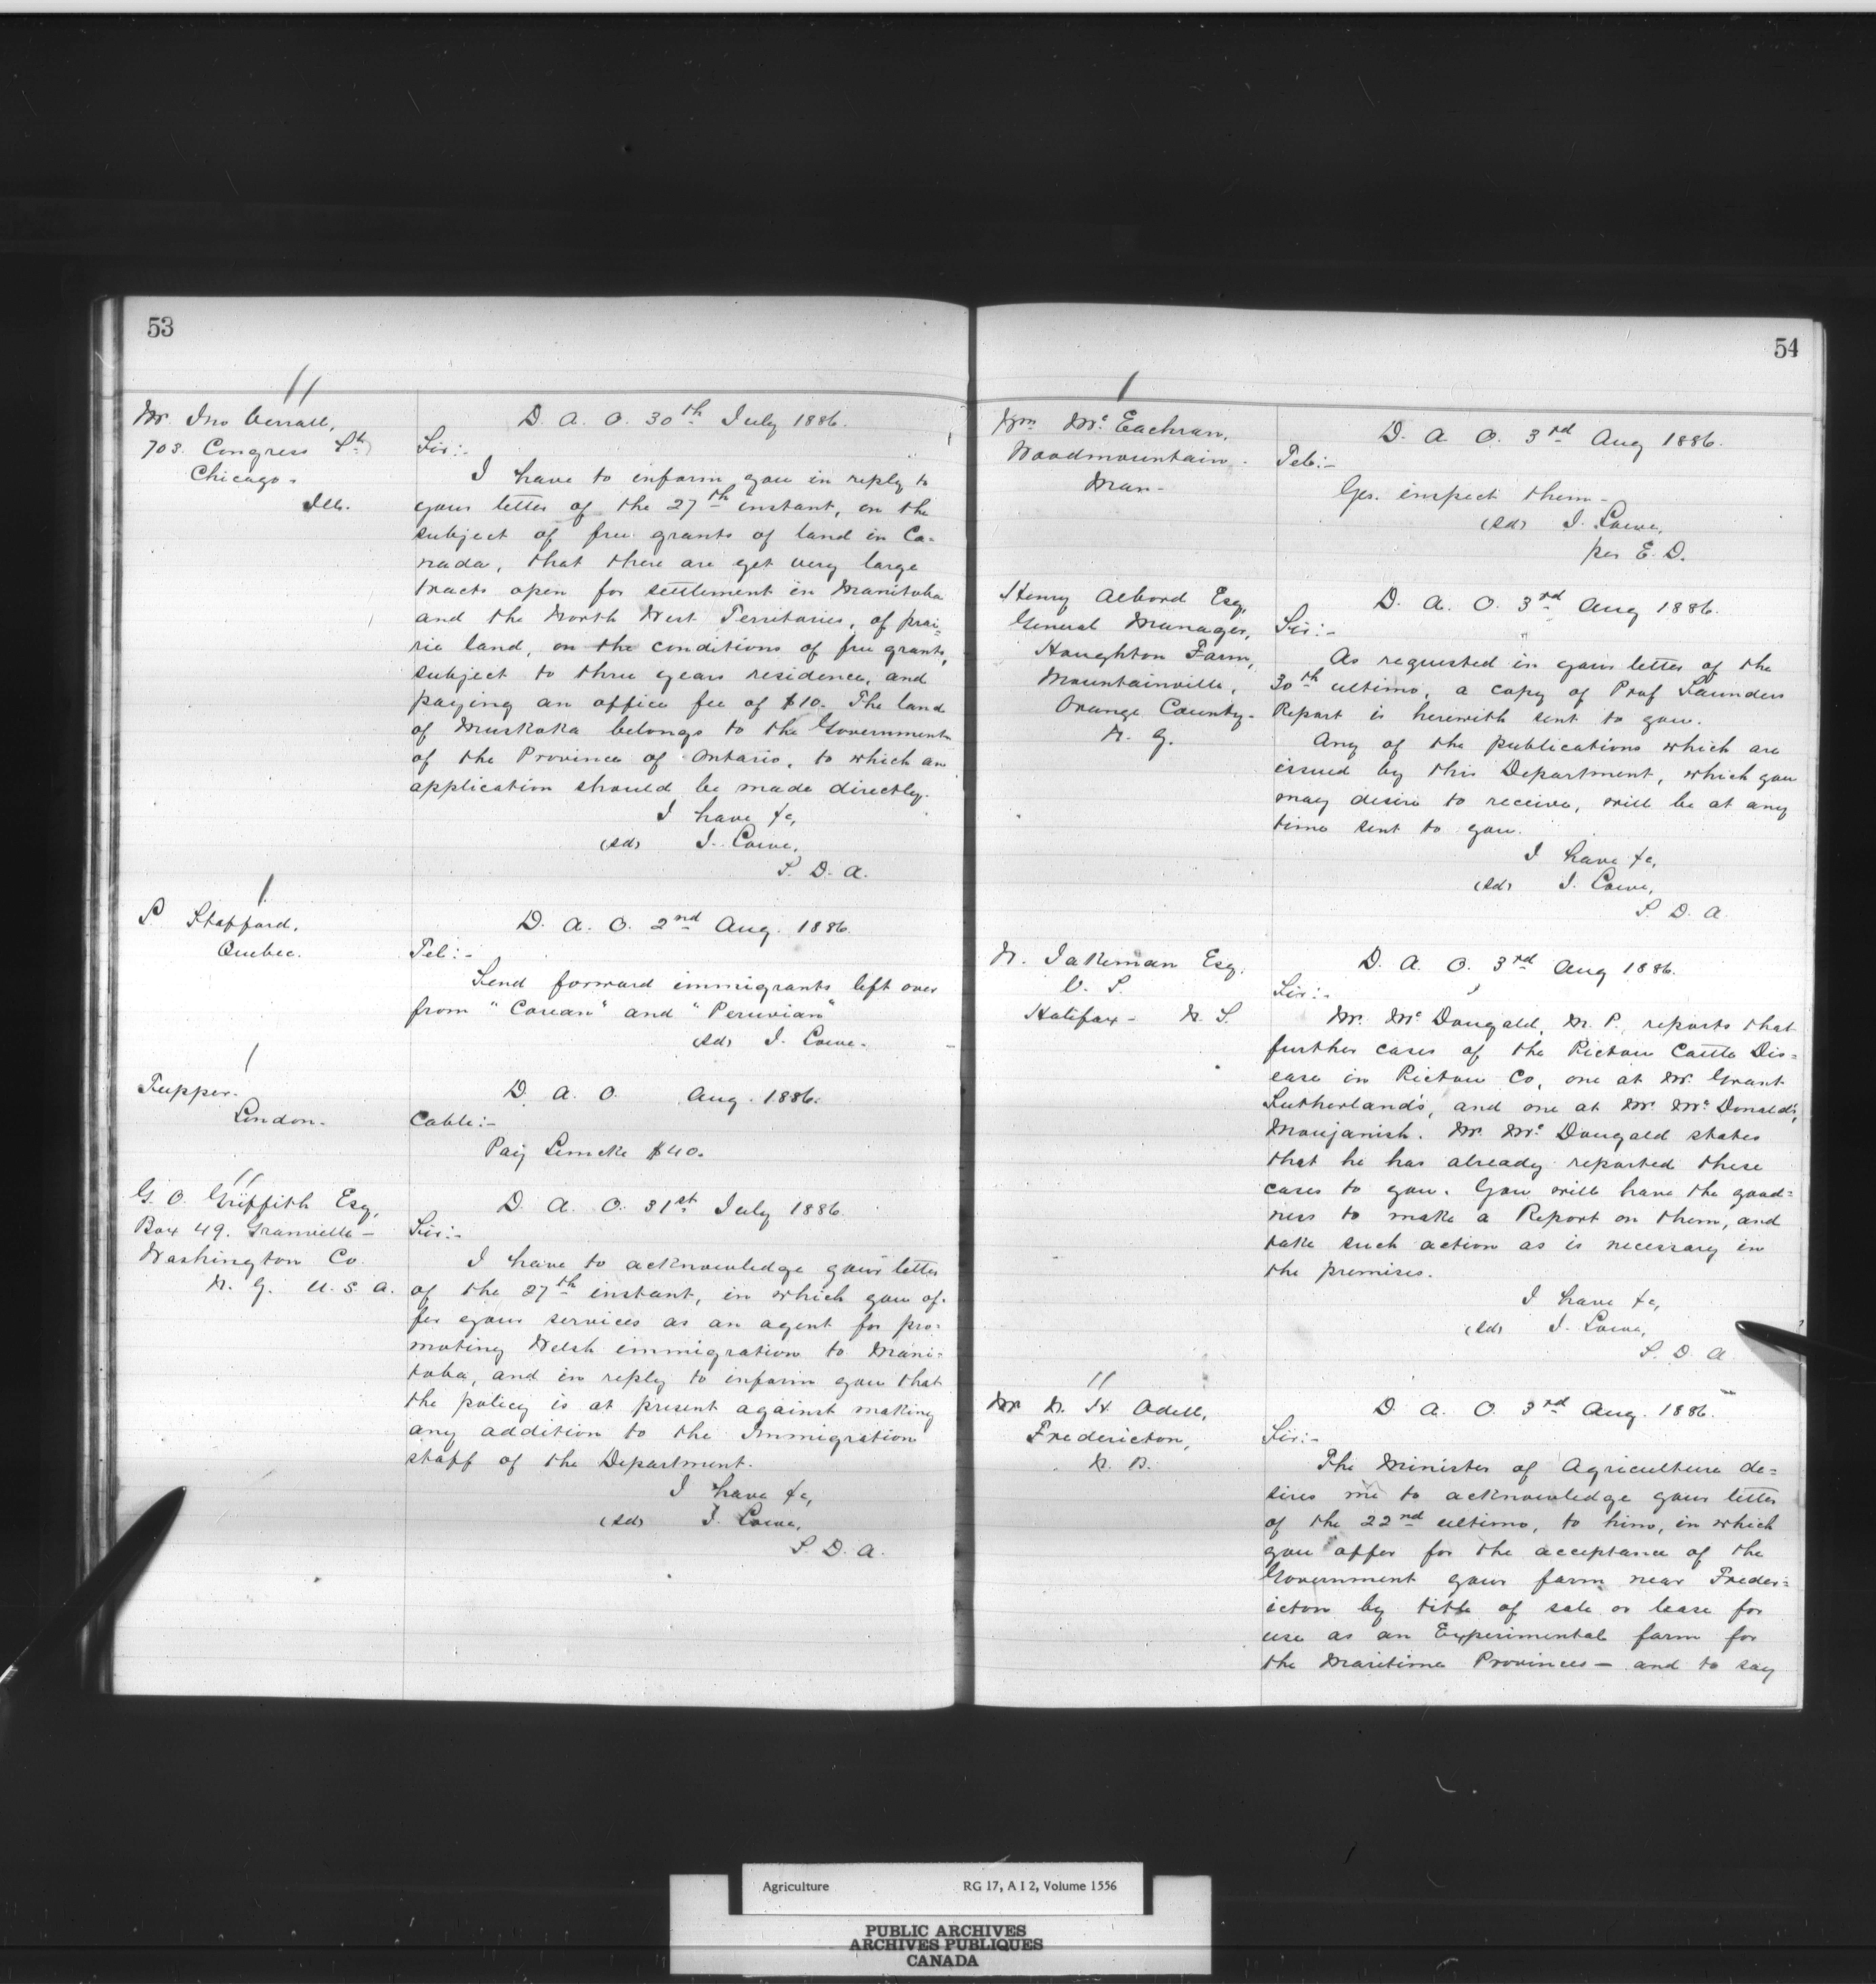 53
Mr. Jno Verrall,
703. Congress St.
Chicago.
Ill.
D. A. O. 30th July 1886.
Sir:-
I have to inform you in reply to
your letter of the 27th instant, on the
subject of free grants of land in Ca-
nada, that there are yet very large
tracts open for settlement in Manitoba
and the North West Territories, of prai=
rie land, on the conditions of free grants,
subject to three years residence, and
paying an office fee of $10. The land
of Muskoka belongs to the Government
of the Province of Ontario, to which an
application should be made directly.
I have &c,
(sd) J. Lowe,
S. D. A.
P. Stafford,
Quebec.
D. A. O. 2nd Aug. 1886.
Tel:-
Send forward immigrants left over
from "Corean" and "Peruvian"
(sd) J. Lowe.
Tupper.
London.
D. A. O. Aug. 1886.
Cable:-
Pay Lemcke $40.
G. O. Griffith Esq,
Box 49. Granville -
Washington Co.
N. Y. U. S. A.
D. A. O. 31st July 1886.
Sir:-
I have to acknowledge your letter
of the 27th instant, in which you of-
fer your services as an agent for pro=
moting Welsh immigration to Mani=
toba, and in reply to inform you that
the policy is at present against making
any addition to the Immigration
staff of the Department.
I have &c,
(sd) J. Lowe,
S. D. A.
54
Wm McEachran,
Woodmountain.
Man-
D. A. O. 3rd Aug 1886.
Tel:-
Yes. inspect them-
(sd) J. Lowe,
per E. D.
Henry Alvord Esq,
General Manager,
Houghton Farm,
Mountainville,
Orange County-
N. Y.
D. A. O. 3rd Aug 1886.
Sir:-
As requested in your letter of the
30th ultimo, a copy of Prof Saunders
Report is herewith sent to you.
Any of the publications which are
issued by this Department, which you
may desire to receive, will be at any
time sent to you.
I have &c,
(sd) J. Lowe,
S. D. A.
W. Jakeman Esq.
V. S.
Halifax - N. S.
D. A. O. 3rd Aug 1886.
Sir:-
Mr. McDougald, M. P., reports that
further cases of the Pictou Cattle Dis=
ease in Pictou Co, one at Mr. Grant
Sutherland's, and one at Mr. McDonald's,
Mr. McDougald states
that he has already reported these
cases to you. You will have the good=
ness to make a Report on them, and
take such action as is necessary in
the premises.
I have &c,
(sd) J. Lowe,
S. D. A.
Mr W. H. Odell,
Fredericton,
N. B.
D. A. O. 3rd Aug. 1886.
Sir:-
The Minister of Agriculture de=
sires me to acknowledge your letter
of the 22nd ultimo, to him, in which
you offer for the acceptance of the
Government your farm near Freder=
icton by title of sale or lease for
use as an Experimental farm for
the Maritime Provinces - and to say
Agriculture RG 17, A I 2, Volume 1556
PUBLIC ARCHIVES
ARCHIVES PUBLIQUES
CANADA